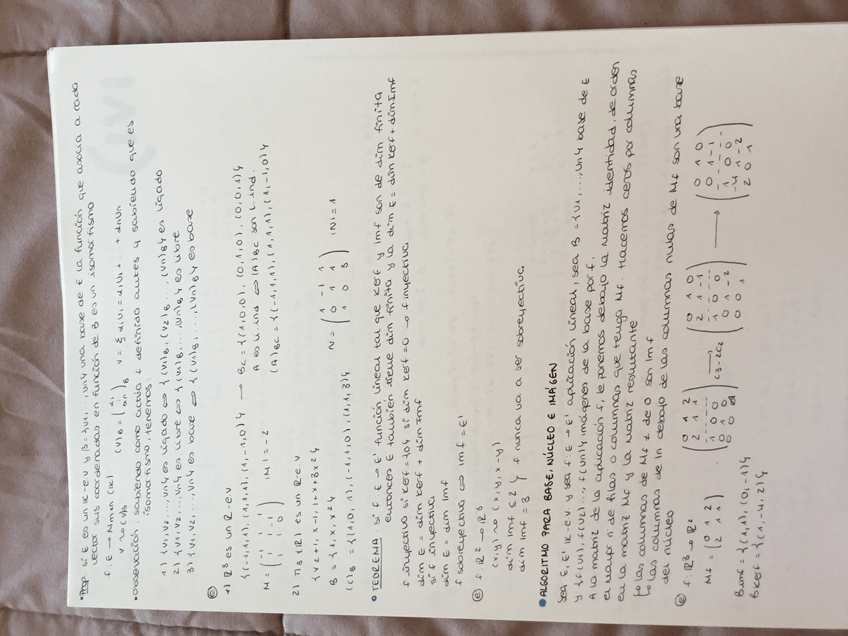 • Prop. Si E es un K-e.v y B={v1,...,vn} una base de E la función que asocia a cada
vector sus coordenadas en función de B es un isomorfismo
f: E → Mnxn (K)
v ~> (v)B
(v)B = (α1 ⋮ αn)B v = Σ αivi = α1v1 + ... + αnvn
• Observación: sabiendo como actúa f definido antes y sabiendo que es
isomorfismo, tenemos:
1) {v1, v2, ..., vn} es ligado ⇔ {(v1)B, (v2)B ... (vn)B} es ligado
2) {v1, v2, ..., vn} es libre ⇔ {(v1)B, ..., (vn)B} es libre
3) {v1, v2, ..., vn} es base ⇔ {(v1)B, ..., (vn)B} es base
e
1) R³ es un R-e.v
{(-1,1,1), (1,1,1), (1,-1,0)} → Bc = {(1,0,0), (0,1,0), (0,0,1)}
A es l.ind ⇔ (A)Bc son l.ind.
M = (-1 1 1
1 1 -1
1 1 0) |M| = -2
(A)Bc = {(-1,1,1), (1,1,1), (1,-1,0)}
2) Π3 (R) es un R-e.v
{x²+1, x-1, 1+x+3x²}
B = {1, x, x²}
(C)B = {(1,0,1), (-1,1,0), (1,1,3)}
N = (1 -1 1
0 1 1
1 0 3) |N| = 1
• TEOREMA Si f: E → E' función lineal tal que Ker f y Im f son de dim finita
entonces E también tiene dim finita y la dim E = dim Ker f + dim Im f
f inyectiva si Ker f = {0} si dim Ker f = 0 → f inyectiva
dim E = dim Ker f + dim Im f
si f inyectiva
dim E = dim Im f
f sobreyectiva ⇔ Im f = E'
e f: R² → R³
(x,y) ~> (x, y, x-y)
dim Im f ≤ 2
dim Im f = 3 } f nunca va a ser sobreyectiva
• ALGORITMO PARA BASE, NÚCLEO E IMÁGEN
Sea E, E' K-e.v y sea f: E → E' aplicación lineal, sea B = {v1, ..., vn} base de E
y {f(v1), f(v2), ..., f(vn)} imágenes de la base por f.
A la matriz de la aplicación f, le ponemos debajo la matriz identidad, de orden
el mayor nº de filas o columnas que tenga Mf. Hacemos ceros por columnas
en la matriz Mf y la matriz resultante
→ las columnas de Mf ≠ de 0 son Im f
→ las columnas de In debajo de las columnas nulas de Mf son una base
del núcleo
e f: R³ → R²
Mf = (0 1 2
2 1 1) · (0 1 2
2 1 1
1 0 0
0 1 0
0 0 1) → C3-2C2 (0 1 0
2 1 -1
1 0 0
0 1 -2
0 0 1) → (0 1 0
0 1 -1
1 0 0
-4 1 -2
2 0 1)
B Imf = {(1,1), (0,-1)}
B Ker f = {(1,-4,2)}